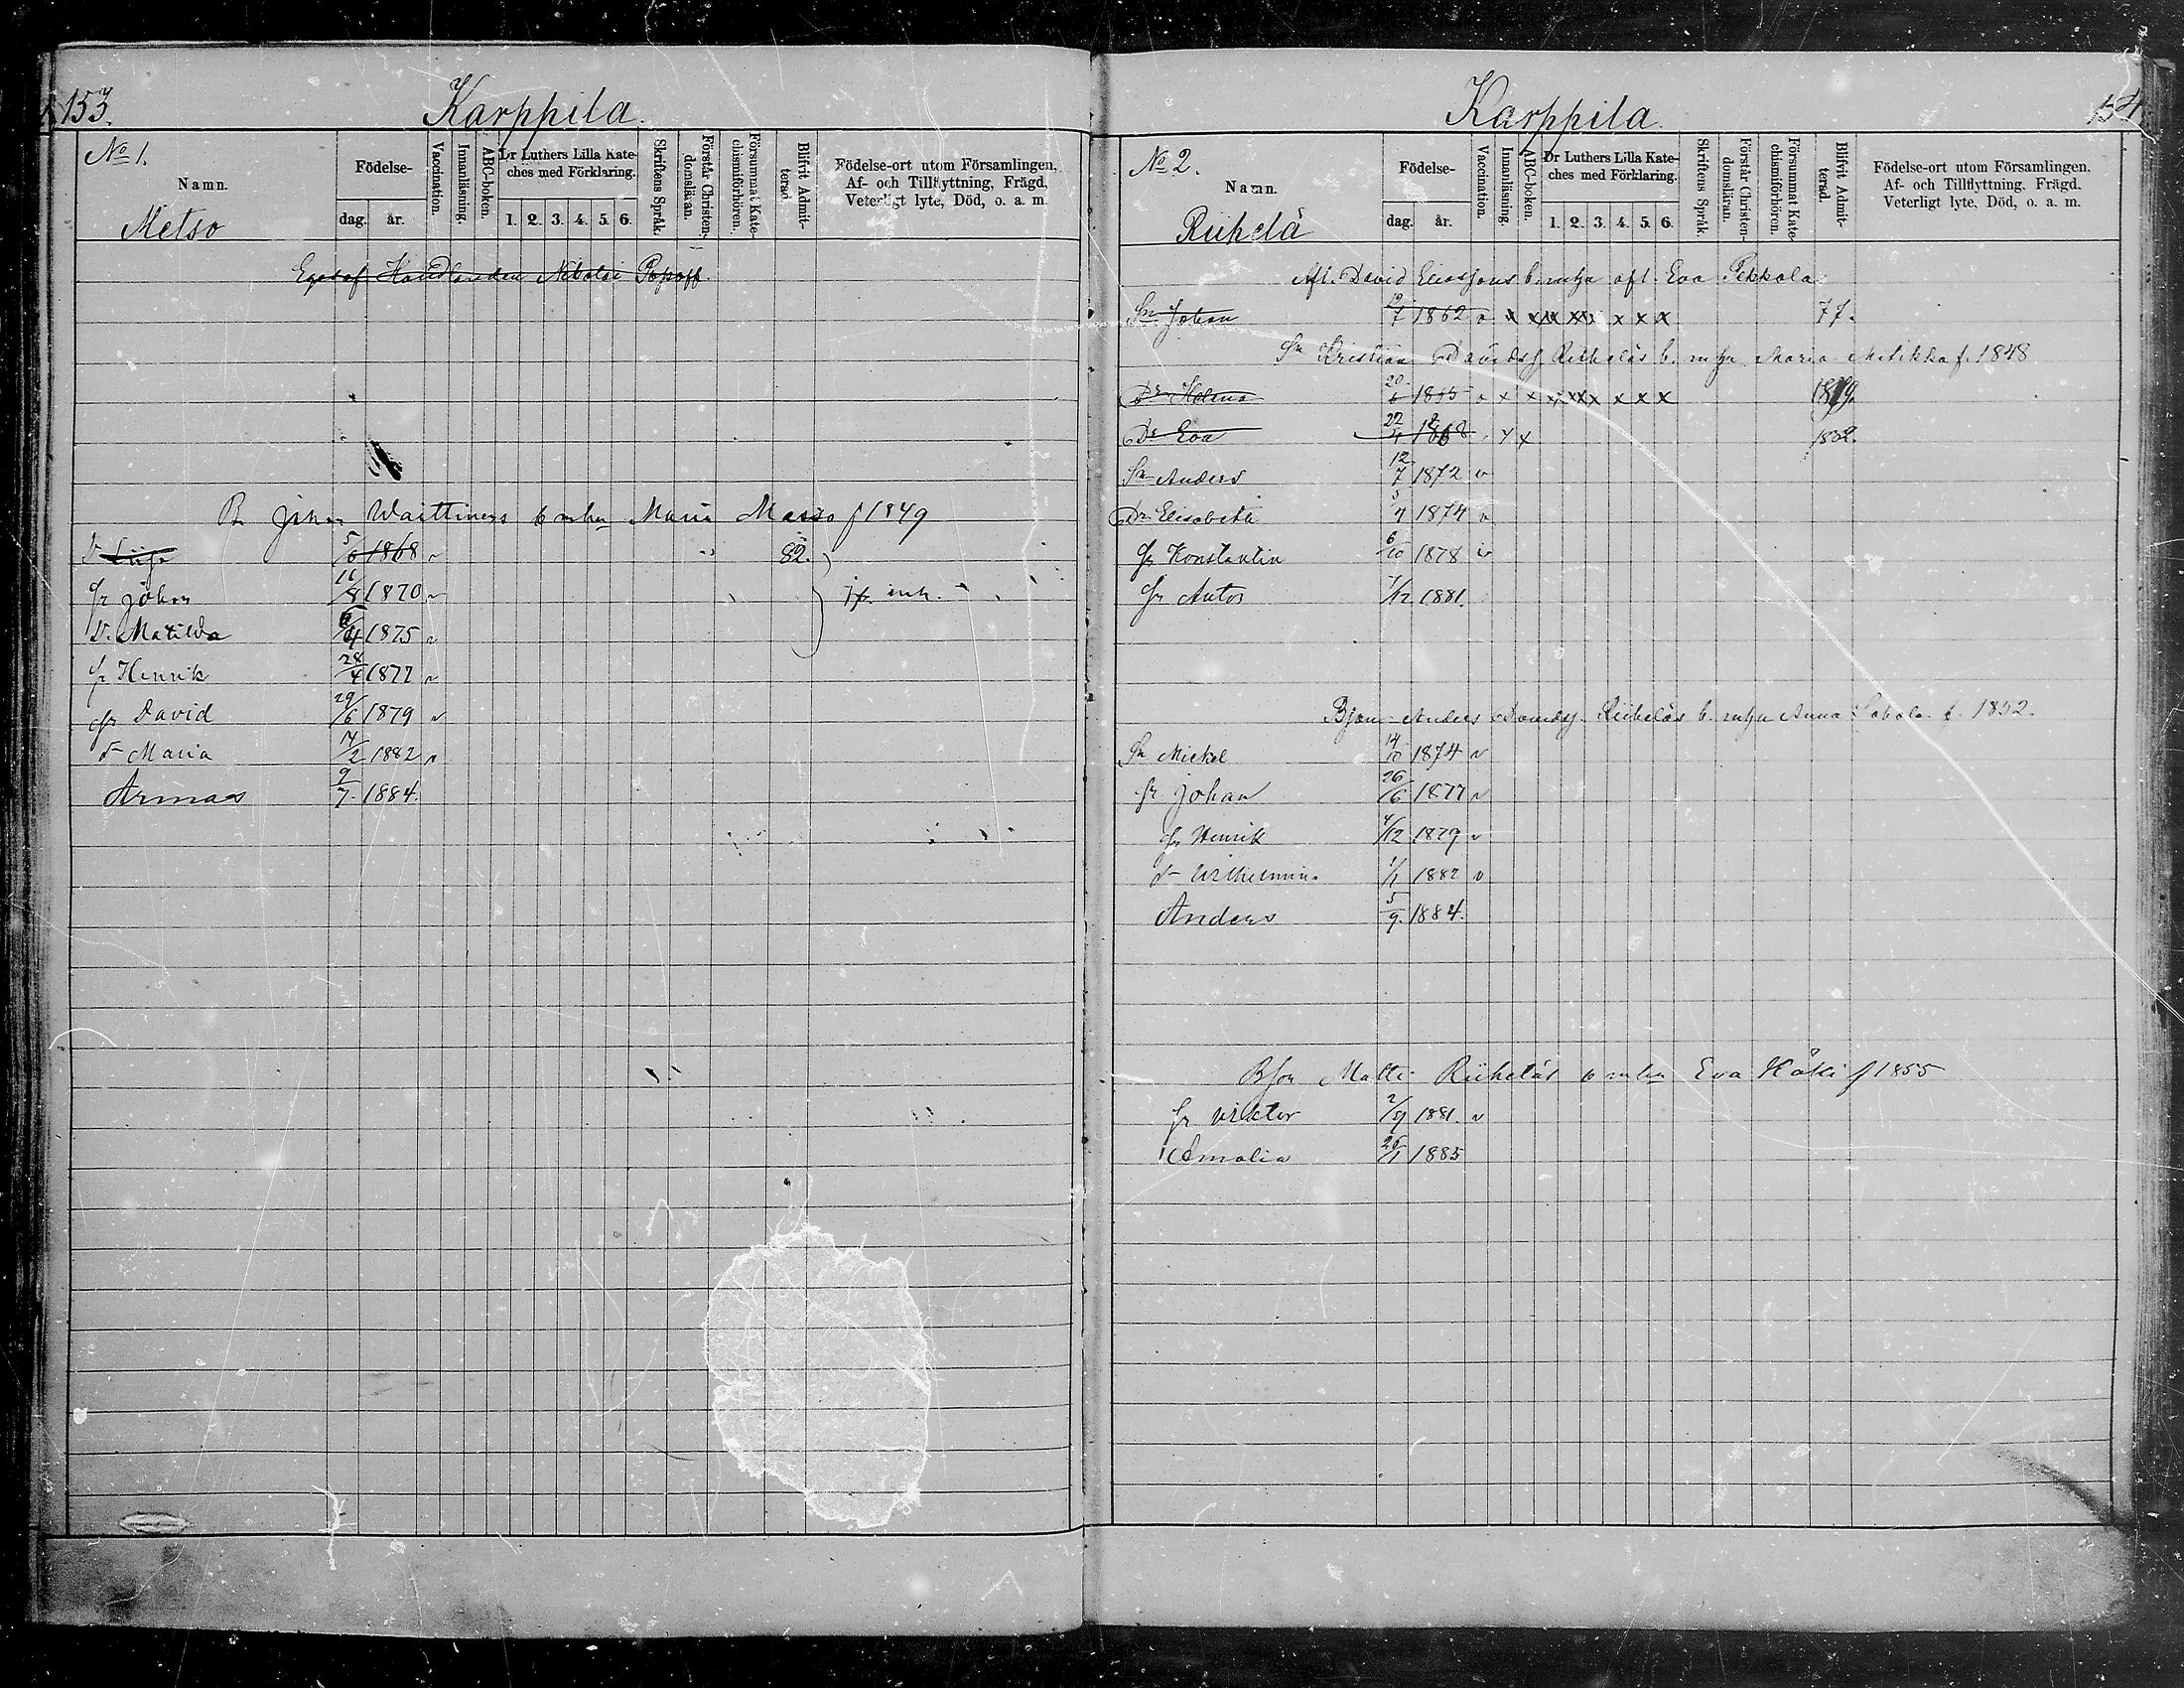 153.
Karppila.
No 1.
Namn.
Metso
Födelse-
dag. år.
Vaccination.
Innanläsning.
ABC-boken.
Dr Luthers Lilla Kate-
ches med Förklaring.
1. 2. 3. 4. 5. 6.
Skriftens Språk.
Förstår Christen-
domsläran.
Försummat Kate-
chismiförhören.
Blifvit Admit-
terad.
Födelse-ort utom Församlingen.
Af- och Tillflyttning, Frägd,
Veterligt lyte, Död, o. a. m.
Handlanden Nikolai Popoff.
Johan Waittinens Maria f 1849
5/6 1868 v 82.
Johan 11/8 1870 v
D. Matilda 1875 v
Henrik 28/4 1877 v
David 29/6 1879 v
Maria 17/2 1882 v
Armas 9/7. 1884.
154
Karppila
No 2.
Namn.
Riihelä
Födelse-
dag. år.
Vaccination.
Innanläsning.
ABC-boken.
Dr Luthers Lilla Kate-
ches med Förklaring.
1. 2. 3. 4. 5. 6.
Skriftens Språk.
Förstår Christen-
domsläran.
Försummat Kate-
chismiförhören.
Blifvit Admit-
terad.
Födelse-ort utom Församlingen.
Af- och Tillflyttning. Frägd.
Veterligt lyte, Död, o. a. m.
Afl. David Eliassons b. m hu afl. Eva Pekkola
Sn Johan 1862 v x x x x x x x x 77.
Sn Kristian Davidsf Riiheläs b. m hu Maria f. 1848
Dr Helena 20/6 1865 v x x x x x x x x
Dr Eva 22/4 1868 x x 1882.
Sn Anders 12/7 1872 v
Dr Elisabeth 5/4 1874 v
Sn Konstantin 6/10 1878 v
Sn Anton 7/12 1881.
Anders Davidsf. Riiheläs b. m hu Anna f. 1852.
Sn Mickel 14/10 1874 v
Sn Johan 26/6 1877 v
Sn Henrik 4/12 1879 v
Dr Wilhelmina 1/1 1882 v
Anders 5/9. 1884.
Matti Riiheläs b m hu Eva Käki f 1855
Sn Viktor 2/9 1881. v
Amalia 25/1 1885